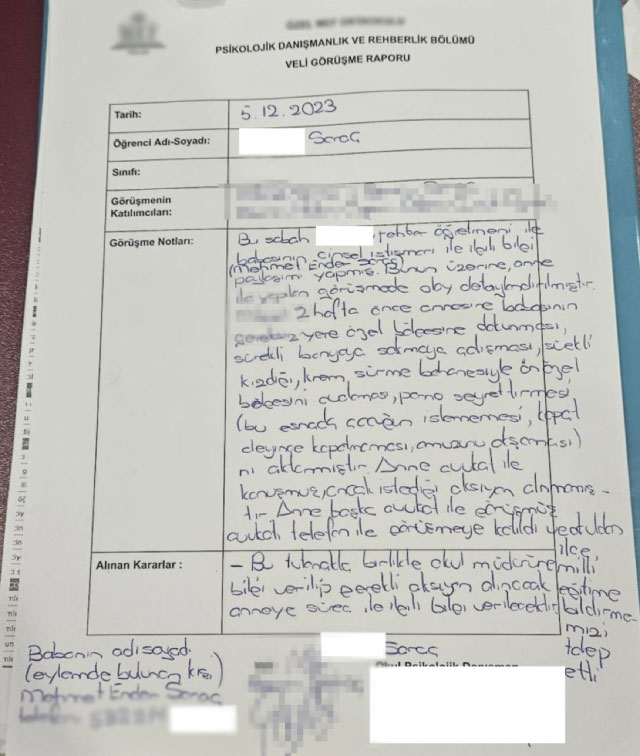 PSİKOLOJİK DANIŞMANLIK VE REHBERLİK BÖLÜMÜ
VELİ GÖRÜŞME RAPORU
Tarih: 5.12.2023
Öğrenci Adı-Soyadı: Saraç
Sınıfı:
Görüşmenin Katılımcıları:
Görüşme Notları: Bu sabah rehber öğretmeni ile
babasının cinsel istismarı ile ilgili bilgi
(Mehmet Ender Saraç)
paylaşımı yapmış. Bunun üzerine, anne
ile yapılan görüşmede olay detaylendirilmiştir.
2 hafta önce annesine babasının
yere özel bölgesine dokunması,
sürekli banyoya sokmaya çalışması, sürekli
kızdığı, krem sürme bahanesiyle ön özel
bölgesini, porno seyrettirmesi
(bu esnada çocuğun istememesi, kapat
deyince kapatmaması,)
nı aktarmıştır. Anne avukat ile
konuşmuş, ancak istediği aksiyon alınmamış-
tır. Anne başka avukat ile görüşmüş
avukat telefon ile görüşmeye katıldı ve okuldan
ilçe
milli
eğitime
bildirme-
mizi
talep
etti
Alınan Kararlar : - Bu tutanakla birlikte okul müdürüne
bilgi verilip gerekli aksiyon alınacak
anneye süreç ile ilgili bilgi verilecektir.
Babanın adı soyadı
(eylemde bulunan kişi)
Mehmet Ender Saraç
telefon
Saraç